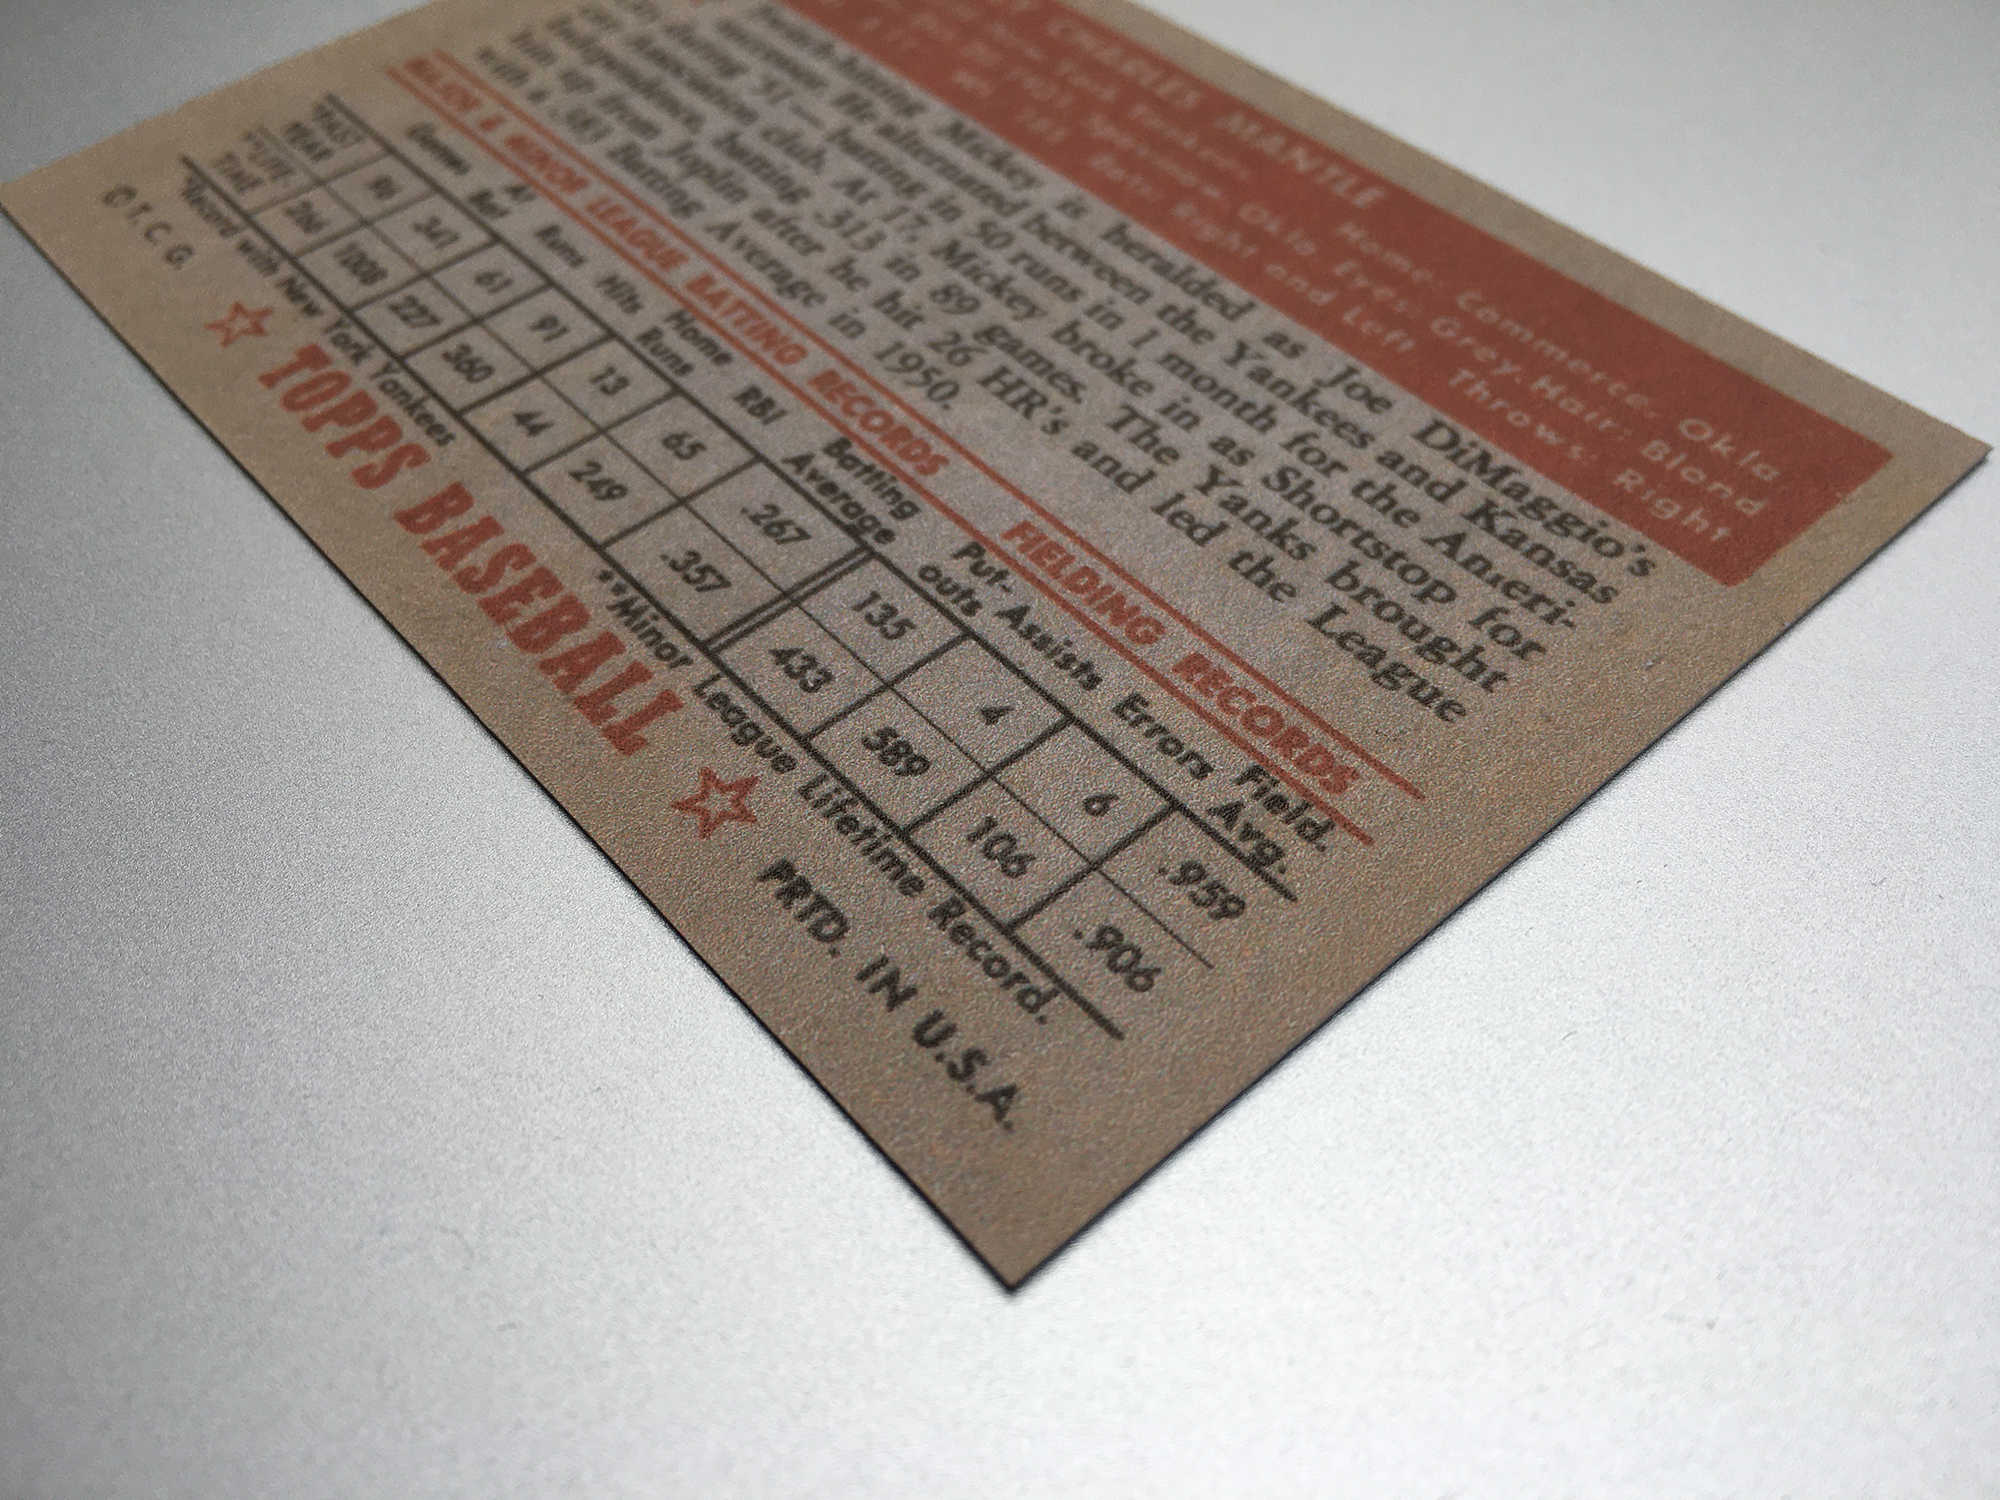 CHARLES MANTLE
New York Yankees Home: Commerce, Okla
Spavinaw, Okla. Eyes: Grey. Hair: Blond
Bats: Right and Left Throws: Right
Mickey is heralded as Joe DiMaggio's
successor. He alternated between the Yankees and Kansas
during '51— batting in 50 runs in 1 month for the Ameri-
can Association club. At 17, Mickey broke in as Shortstop for
Independence, batting .313 in 89 games. The Yanks brought
him up from Joplin after he hit 26 HR's and led the League
with a .383 Batting Average in 1950.
MAJOR & MINOR LEAGUE BATTING RECORDS FIELDING RECORDS
Games At Bat Runs Hits Home Runs RBI Batting Average Put-outs Assists Errors Field. Avg.
*PAST YEAR 96 341 61 91 13 65 .267 135 4 6 .959
**LIFE-TIME 266 1008 227 360 44 249 .357 433 589 106 .906
*Record with New York Yankees **Minor League Lifetime Record.
© T. C. G. TOPPS BASEBALL PRTD. IN U.S.A.